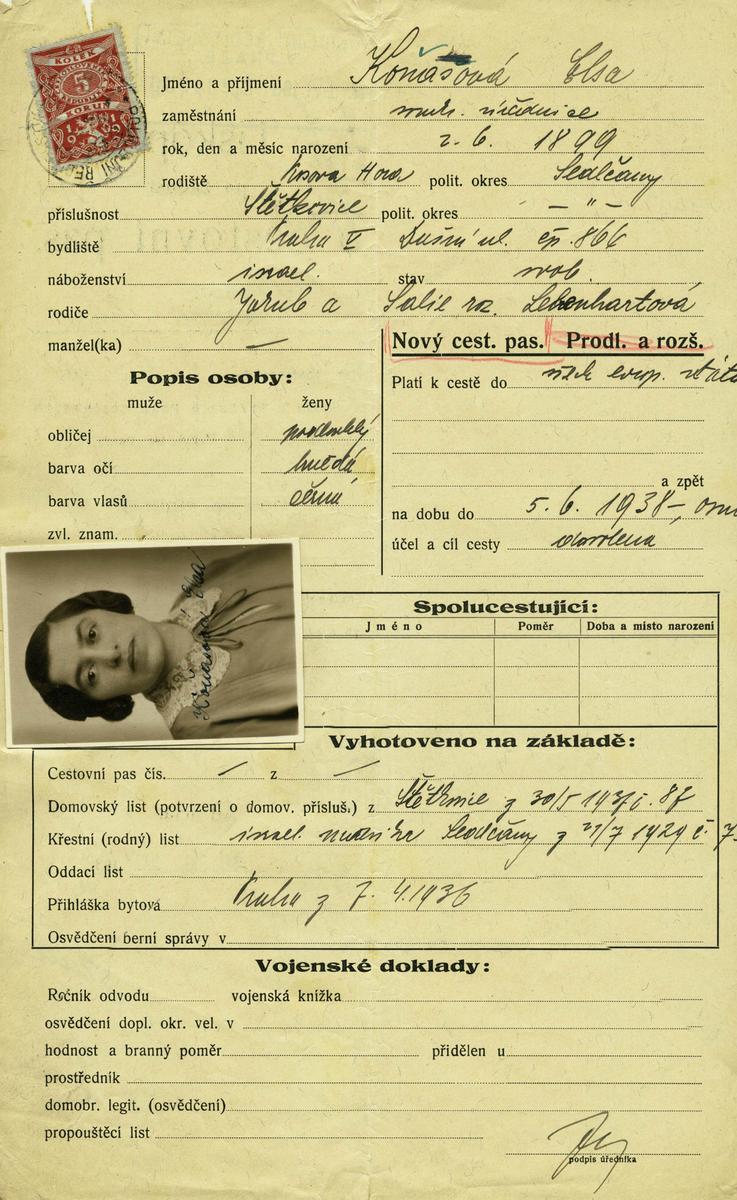 KOLEK
5
KORUN
1919
Jméno a příjmení Koňasová Elsa
zaměstnání soukr. úřednice
rok, den a měsíc narození 2. 6. 1899
rodiště Kosova Hora polit. okres Sedlčany
příslušnost Štětkovice polit. okres — " —
bydliště Praha V Dušní ul. čp. 866
náboženství israel. stav svob.
rodiče Jakub a Salie roz. Lebenhartová
manžel(ka) —
Nový cest. pas. Prodl. a rozš.
Popis osoby:
muže ženy
obličej podouhlý
barva očí hnědá
barva vlasů černá
zvl. znam.
Platí k cestě do všech evrop. států
a zpět
na dobu do 5. 6. 1938
účel a cíl cesty dovolená
Koňasová Elsa
Spolucestující:
Jméno Poměr Doba a místo narození
Vyhotoveno na základě:
Cestovní pas čís. — z —
Domovský list (potvrzení o domov. přísluš.) z Štětkovice z 30/5 1931 č. 87
Křestní (rodný) list israel. matrika Sedlčany z 1929 č. 7
Oddací list
Přihláška bytová Praha z 7. 4. 1936
Osvědčení berní správy v
Vojenské doklady:
Ročník odvodu vojenská knížka
osvědčení dopl. okr. vel. v
hodnost a branný poměr přidělen u
prostředník
domobr. legit. (osvědčení)
propouštěcí list
podpis úředníka